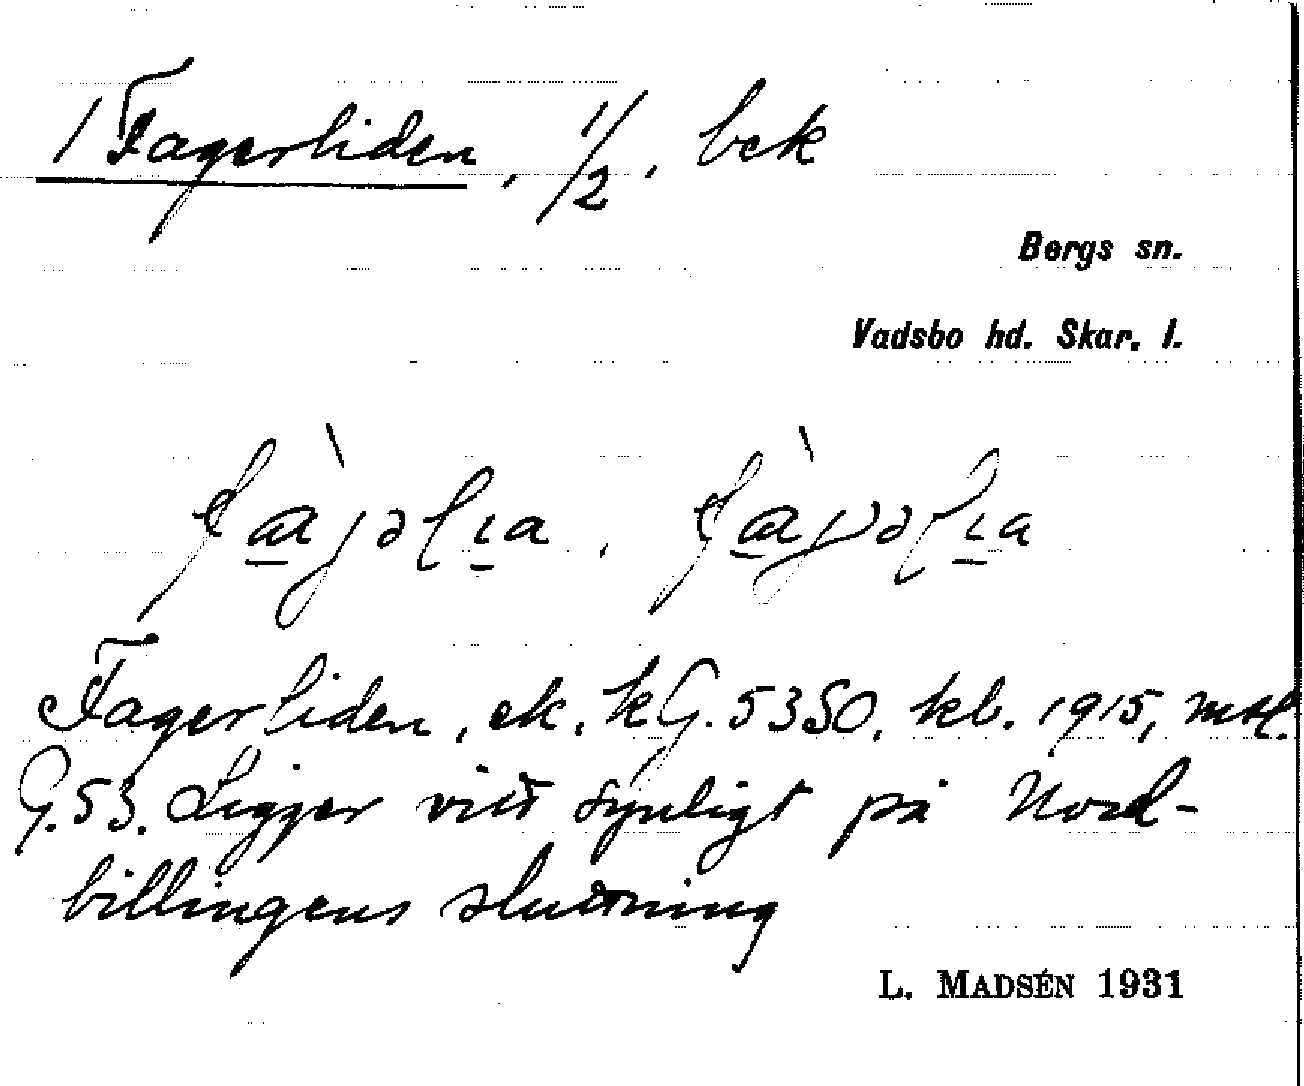 1 Fagerliden, 1/2, bek
Bergs sn.
Vadsbo hd. Skar. l.
Fagerliden, ek. kG. 53SO, kb. 1915, mtl.
G. 53. Ligger vitt synligt på Nord-
billingens sluttning
L. MADSÉN 1931